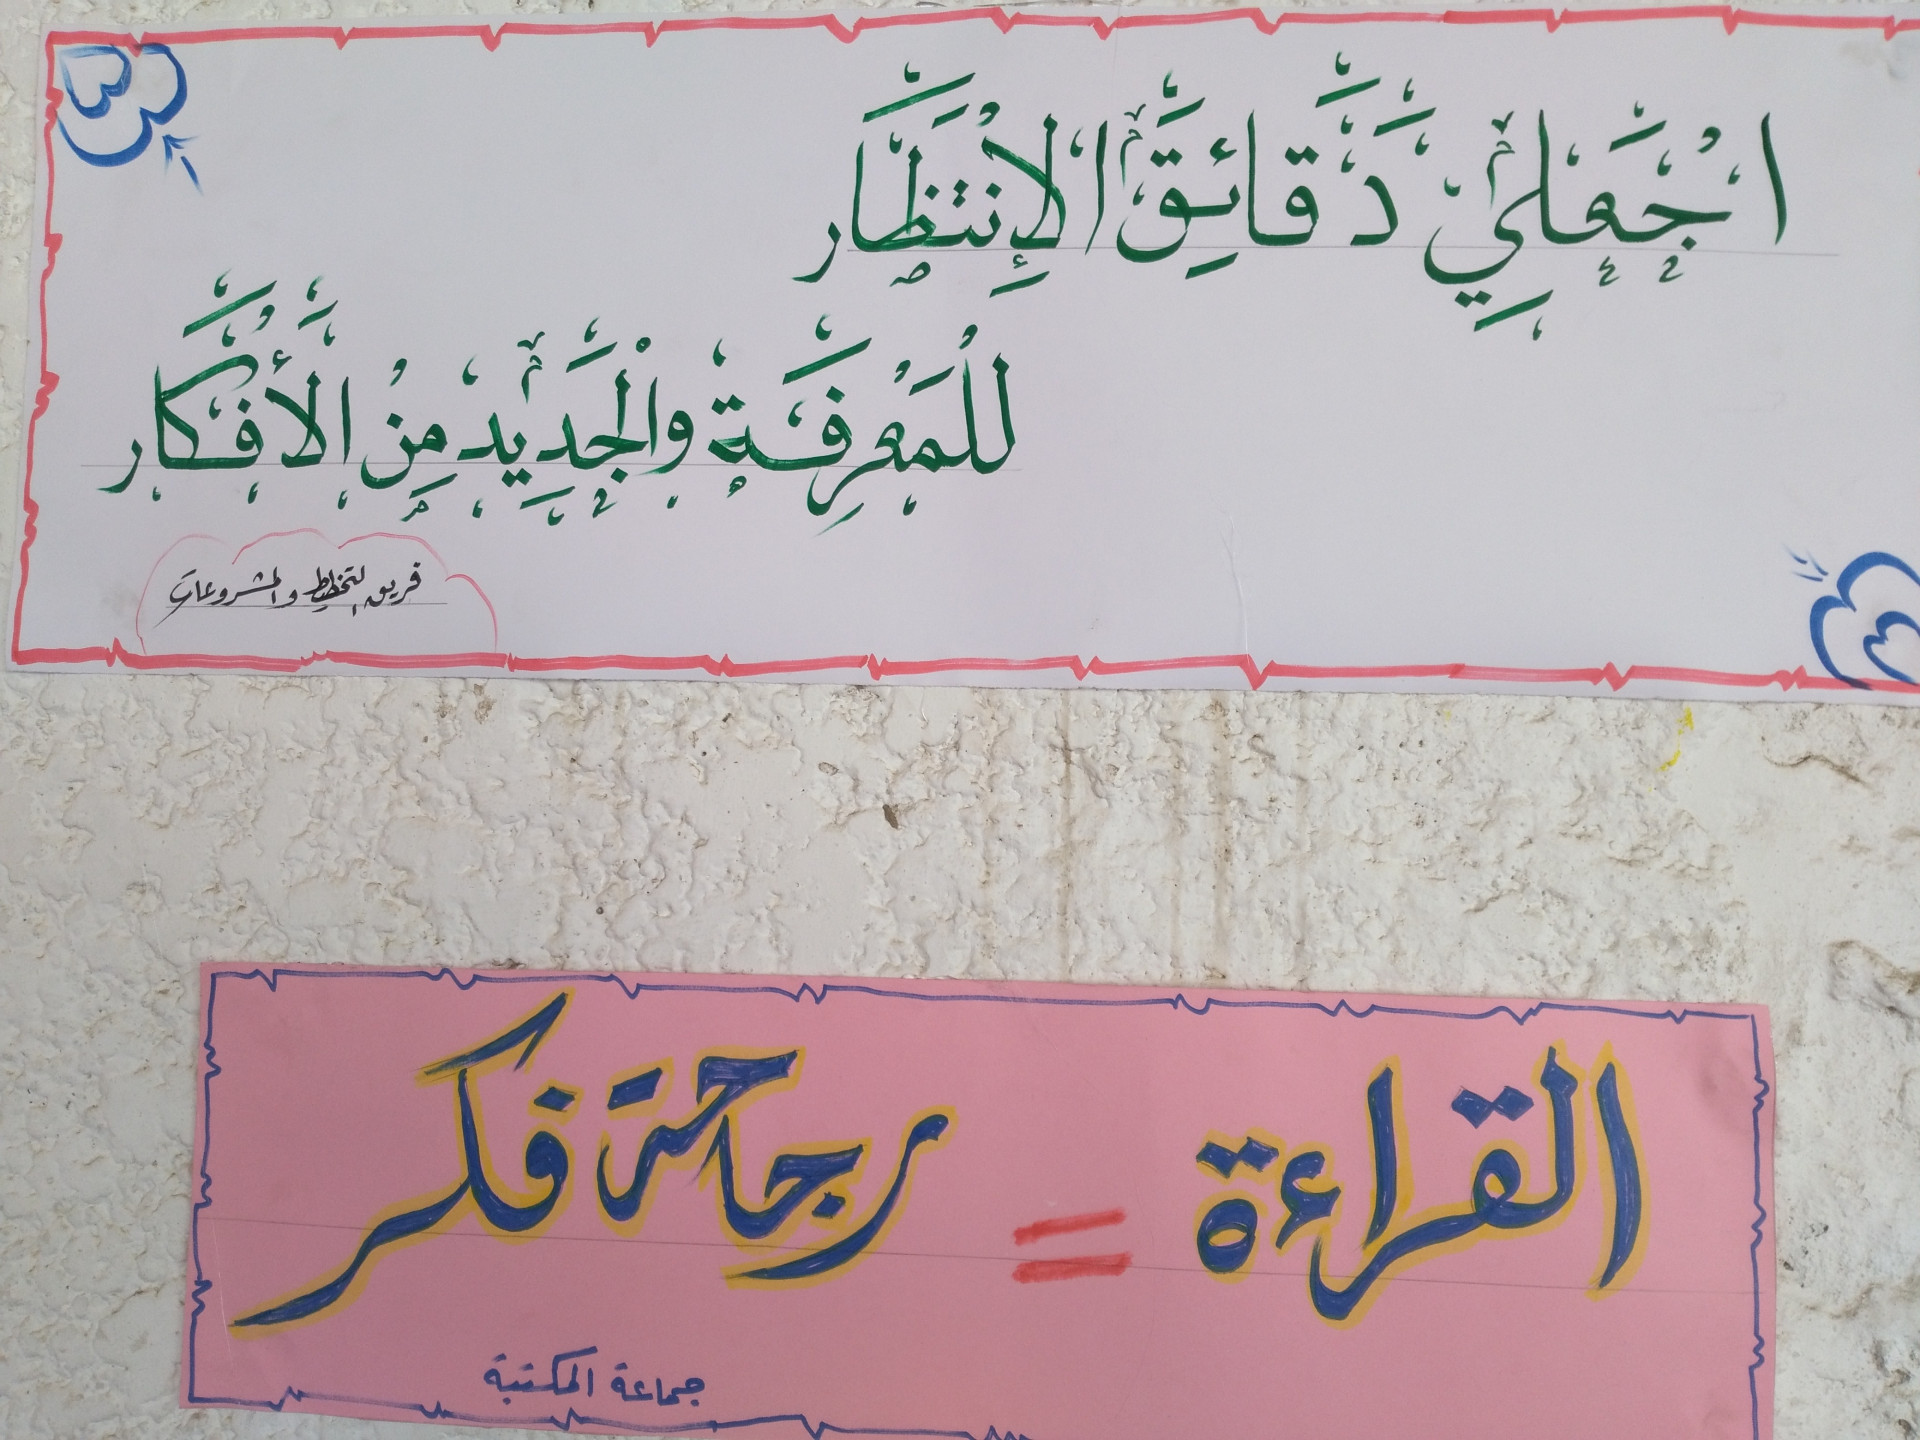 اجْعَلِي دَقَائِقَ الإِنْتِظَار
لِلْمَعْرِفَةِ والْجَدِيدِ مِنْ الأَفْكَار
فريق التخطيط والمشروعات
القراءة = رجاحة فكر
جماعة المكتبة